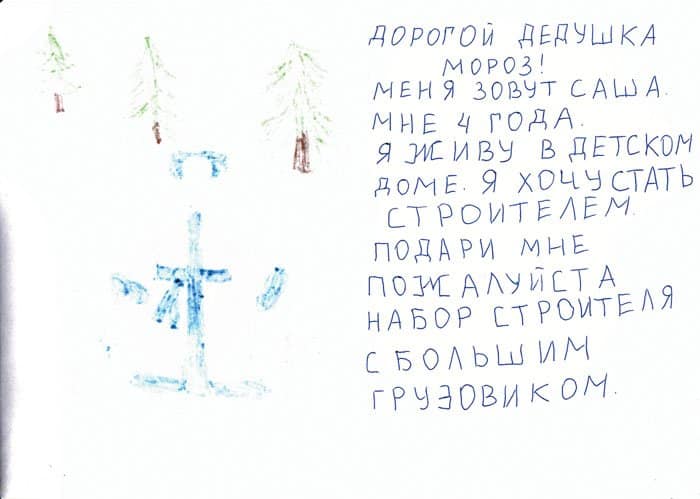 ДОРОГОЙ ДЕДУШКА
МОРОЗ!
МЕНЯ ЗОВУТ САША.
МНЕ 4 ГОДА.
Я ЖИВУ В ДЕТСКОМ
ДОМЕ. Я ХОЧУ СТАТЬ
СТРОИТЕЛЕМ.
ПОДАРИ МНЕ
ПОЖАЛУЙСТА
НАБОР СТРОИТЕЛЯ
С БОЛЬШИМ
ГРУЗОВИКОМ.